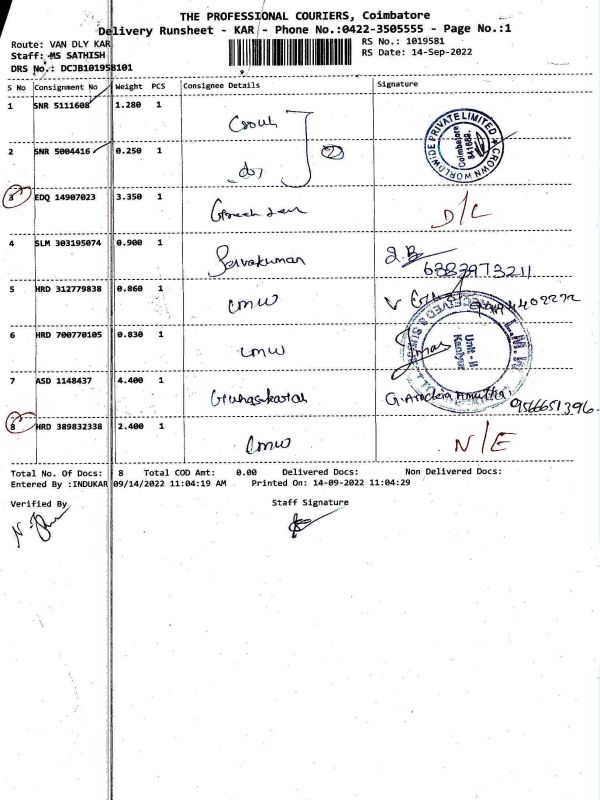 THE PROFESSIONAL COURIERS, Coimbatore
Delivery Runsheet - KAR - Phone No.:0422-3505555 - Page No.:1
Route: VAN DLY KAR
RS No.: 1019581
Staff: MS SATHISH
RS Date: 14-Sep-2022
DRS No.: DCJB101958101
S No Consignment No Weight PCS Consignee Details Signature
1 SNR 5111608 1.280 1
2 SNR 5004416 0.250 1 2
CROWN WORLDWIDE PRIVATE LIMITED Coimbatore 641669.
3 EDQ 14907023 3.350 1 D/L
4 SLM 303195074 0.900 1 Servakuman
6383973211
5 HRD 312779838 0.860 1 CMW
6 HRD 700770105 0.830 1 CMW
L.M.W. Unit-II RECEIVED &
7 ASD 1148437 4.400 1
9566651396
8 HRD 389832338 2.400 1 CMW N/E
Total No. Of Docs: 8 Total COD Amt: 0.00 Delivered Docs: Non Delivered Docs:
Entered By :INDUKAR 09/14/2022 11:04:19 AM Printed On: 14-09-2022 11:04:29
Verified By Staff Signature